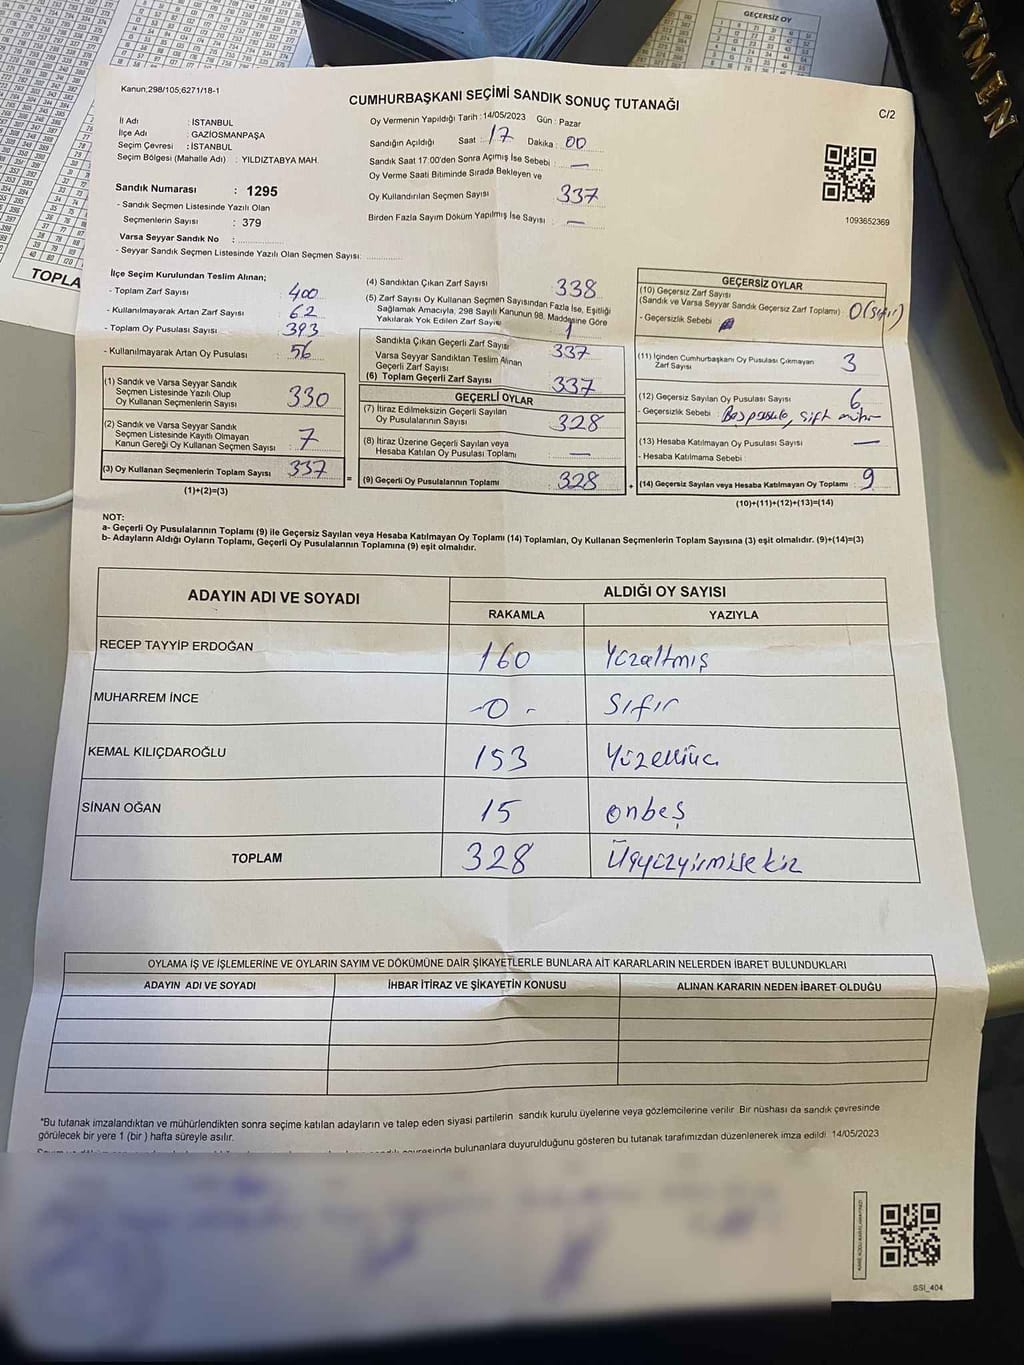 Kanun;298/105;6271/18-1
CUMHURBAŞKANI SEÇİMİ SANDIK SONUÇ TUTANAĞI
C/2
İl Adı : İSTANBUL
İlçe Adı : GAZİOSMANPAŞA
Seçim Çevresi : İSTANBUL
Seçim Bölgesi (Mahalle Adı) : YILDIZTABYA MAH.
Sandık Numarası : 1295
- Sandık Seçmen Listesinde Yazılı Olan
Seçmenlerin Sayısı : 379
Varsa Seyyar Sandık No :
- Seyyar Sandık Seçmen Listesinde Yazılı Olan Seçmen Sayısı:
Oy Vermenin Yapıldığı Tarih : 14/05/2023 Gün : Pazar
Sandığın Açıldığı Saat : 17 Dakika : 00
Sandık Saat 17:00'den Sonra Açımış İse Sebebi : —
Oy Verme Saati Bitiminde Sırada Bekleyen ve
Oy Kullandırılan Seçmen Sayısı 337
Birden Fazla Sayım Döküm Yapılmış İse Sayısı : —
1093652369
İlçe Seçim Kurulundan Teslim Alınan;
- Toplam Zarf Sayısı : 400
- Kullanılmayarak Artan Zarf Sayısı : 62
- Toplam Oy Pusulası Sayısı : 393
- Kullanılmayarak Artan Oy Pusulası : 56
(1) Sandık ve Varsa Seyyar Sandık
Seçmen Listesinde Yazılı Olup
Oy Kullanan Seçmenlerin Sayısı : 330
(2) Sandık ve Varsa Seyyar Sandık
Seçmen Listesinde Kayıtlı Olmayan
Kanun Gereği Oy Kullanan Seçmen Sayısı : 7
(3) Oy Kullanan Seçmenlerin Toplam Sayısı : 337
(1)+(2)=(3)
(4) Sandıktan Çıkan Zarf Sayısı : 338
(5) Zarf Sayısı Oy Kullanan Seçmen Sayısından Fazla İse, Eşitliği
Sağlamak Amacıyla, 298 Sayılı Kanunun 98. Maddesine Göre
Yakılarak Yok Edilen Zarf Sayısı : 1
Sandıkta Çıkan Geçerli Zarf Sayısı : 337
Varsa Seyyar Sandıktan Teslim Alınan
Geçerli Zarf Sayısı
(6) Toplam Geçerli Zarf Sayısı : 337
GEÇERLİ OYLAR
(7) İtiraz Edilmeksizin Geçerli Sayılan
Oy Pusulalarının Sayısı : 328
(8) İtiraz Üzerine Geçerli Sayılan veya
Hesaba Katılan Oy Pusulası Toplamı : —
= (9) Geçerli Oy Pusulalarının Toplamı : 328
GEÇERSİZ OYLAR
(10) Geçersiz Zarf Sayısı
(Sandık ve Varsa Seyyar Sandık Geçersiz Zarf Toplamı) : 0 (sıfır)
- Geçersizlik Sebebi :
(11) İçinden Cumhurbaşkanı Oy Pusulası Çıkmayan
Zarf Sayısı : 3
(12) Geçersiz Sayılan Oy Pusulası Sayısı : 6
- Geçersizlik Sebebi : Boş pusula, çift mühür
(13) Hesaba Katılmayan Oy Pusulası Sayısı : —
- Hesaba Katılmama Sebebi :
+ (14) Geçersiz Sayılan veya Hesaba Katılmayan Oy Toplamı : 9
(10)+(11)+(12)+(13)=(14)
NOT:
a- Geçerli Oy Pusulalarının Toplamı (9) ile Geçersiz Sayılan veya Hesaba Katılmayan Oy Toplamı (14) Toplamları, Oy Kullanan Seçmenlerin Toplam Sayısına (3) eşit olmalıdır. (9)+(14)=(3)
b- Adayların Aldığı Oyların Toplamı, Geçerli Oy Pusulalarının Toplamına (9) eşit olmalıdır.
ADAYIN ADI VE SOYADI
ALDIĞI OY SAYISI
RAKAMLA YAZIYLA
RECEP TAYYİP ERDOĞAN 160 Yüzaltmış
MUHARREM İNCE -0- Sıfır
KEMAL KILIÇDAROĞLU 153 Yüzelliüç
SİNAN OĞAN 15 onbeş
TOPLAM 328 Üçyüzyirmisekiz
OYLAMA İŞ VE İŞLEMLERİNE VE OYLARIN SAYIM VE DÖKÜMÜNE DAİR ŞİKAYETLERLE BUNLARA AİT KARARLARIN NELERDEN İBARET BULUNDUKLARI
ADAYIN ADI VE SOYADI İHBAR İTİRAZ VE ŞİKAYETİN KONUSU ALINAN KARARIN NEDEN İBARET OLDUĞU
*Bu tutanak imzalandıktan ve mühürlendikten sonra seçime katılan adayların ve talep eden siyasi partilerin sandık kurulu üyelerine veya gözlemcilerine verilir. Bir nüshası da sandık çevresinde
görülecek bir yere 1 (bir) hafta süreyle asılır.
bulunanlara duyurulduğunu gösteren bu tutanak tarafımızdan düzenlenerek imza edildi. 14/05/2023
SSI_404
GEÇERSİZ OY
TOPLA